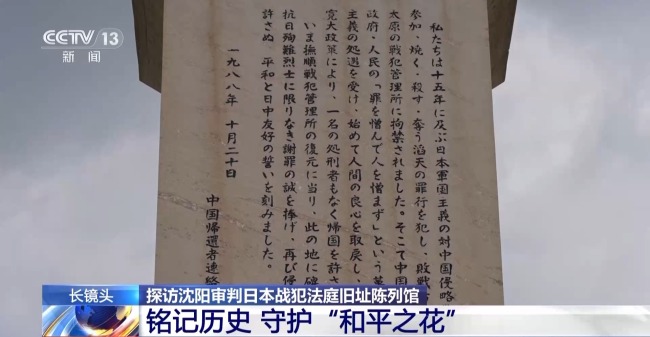 CCTV 13
新闻
私たちは十五年に及ぶ日本軍国主義の対中国侵略
参加、焼く・殺す・奪う滔天の罪行を犯し、敗戦
太原の戦犯管理所に拘禁されました。そこで中国
政府・人民の「罪を憎んで人を憎まず」という
主義の処遇を受け、始めて人間の良心を取戻し、
寛大政策により、一名の処刑者もなく帰国を許さ
いま撫順戦犯管理所の復元に当り、此の地に碑
抗日殉難烈士に限りなき謝罪の誠を捧げ、再び侵
許さぬ、平和と日中友好の誓いを刻みました。
一九八八年 十月二十日
中国帰還者連絡
长镜头
探访沈阳审判日本战犯法庭旧址陈列馆
铭记历史 守护“和平之花”